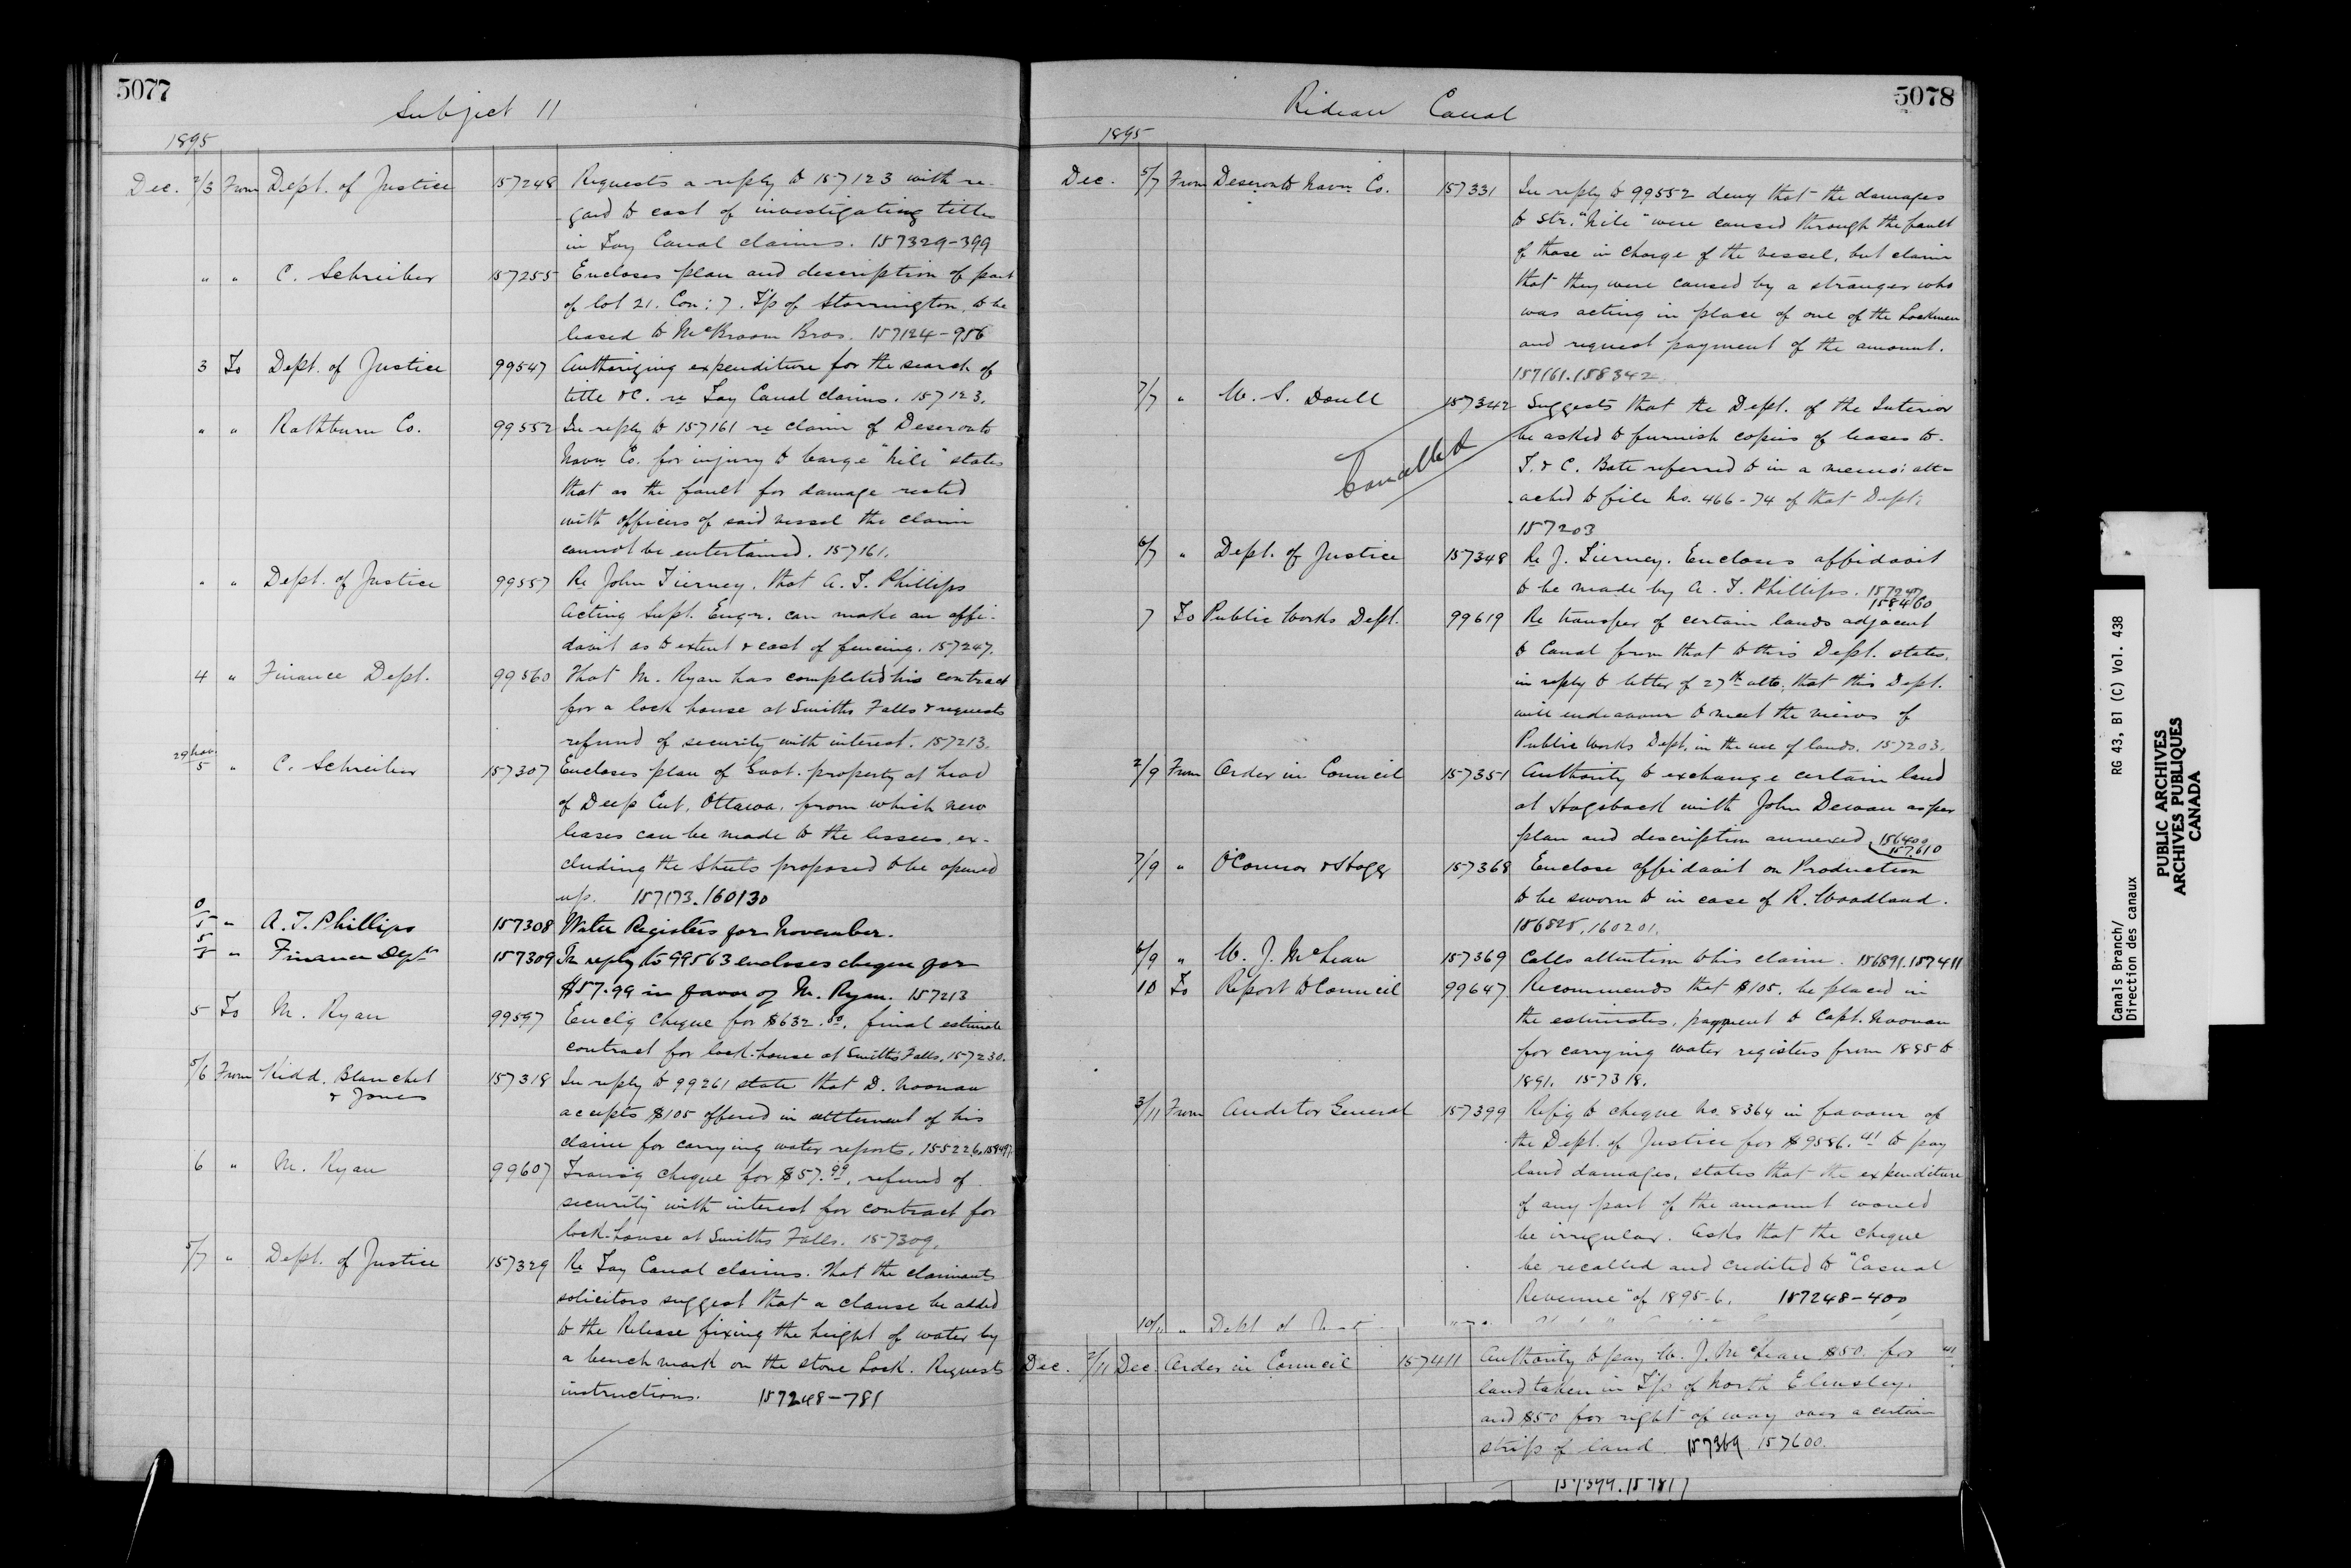 5077
Subject 11
1895
Dec. 2/3 From Dept. of Justice 157248 Requests a reply to 157123 with re-
gard to cost of investigating titles
in Tay Canal claims. 157329-399
" " C. Schreiber 157255 Encloses plan and description of part
of lot 21. Con: 7. T'p of Storrington, to be
leased to McBroom Bros. 157124-956
3 To Dept. of Justice 99547 Authorizing expenditure for the search of
title &c. re Tay Canal claims. 157123.
" " Rathburn Co. 99552 In reply to 157161 re claim of Deseronto
Navn Co. for injury to barge "Nile" states
that as the fault for damage rested
with officers of said vessel the claim
cannot be entertained. 157161.
" " Dept. of Justice 99557 Re John Tierney. that A. T. Phillips
Acting Supt. Engr. can make an affi-
davit as to extent & cost of fencing. 157247.
4 " Finance Dept. 99560 That M. Ryan has completed his contract
for a lock house at Smiths Falls & requests
refund of security with interest. 157213.
29 Nov./5 " C. Schreiber 157307 Encloses plan of Govt. property at head
of Deep Cut, Ottawa, from which new
leases can be made to the lessees, ex-
cluding the Streets proposed to be opened
up. 157173.160130
0/5 " A. T. Phillips 157308 Water Registers for November.
5/5 " Finance Dept 157309 In reply to 99563 encloses cheque for
$57.99 in favor of M. Ryan. 157213
5 To M. Ryan 99597 Enclg cheque for $632.80, final estimate
contract for lock-house at Smiths Falls. 157230.
5/6 From Kidd, Blanchet
& Jones 157318 In reply to 99261 state that D. Noonan
accepts $105 offered in settlement of his
claim for carrying water reports. 155226.
6 " M. Ryan 99607 Transg cheque for $57.99, refund of
security with interest for contract for
lock-house at Smiths Falls. 157309.
5/7 " Dept. of Justice 157329 Re Tay Canal claims. That the claimants
solicitors suggest that a clause be added
to the Release fixing the height of water by
a bench mark on the stone Lock. Requests
instructions. 157248-781
Rideau Canal
5078
1895
Dec. 5/7 From Deseronto Navn Co. 157331 In reply to 99552 deny that the damages
to Str. "Nile" were caused through the fault
of those in charge of the vessel, but claim
that they were caused by a stranger who
was acting in place of one of the Lockmen
and request payment of the amount.
157161.158342
7/7 " W. S. Doull 157342 Suggests that the Dept. of the Interior
be asked to furnish copies of leases to
T. & C. Bate referred to in a memo: att-
ached to file No. 466-74 of that Dept.
157203
Cancelled
6/7 " Dept. of Justice 157348 Re J. Tierney. Encloses affidavit
to be made by A. T. Phillips. 157247
158460
7 To Public Works Dept. 99619 Re transfer of certain lands adjacent
to Canal from that to this Dept. states,
in reply to letter of 27th ulto, that this Dept.
will endeavour to meet the views of
Public Works Dept. in the use of lands. 157203.
2/9 From Order in Council 157351 Authority to exchange certain land
at Hogsback with John Dewan as per
plan and description annexed. 156400
157610
7/9 " O'Connor & Hogg 157368 Enclose affidavit on Production
to be sworn to in case of R. Woodland.
156825, 160201.
6/9 " W. J. McLean 157369 Calls attention to his claim. 156891.157411
10 To Report to Council 99647 Recommends that $105. be placed in
the estimates, payment to Capt. Noonan
for carrying water registers from 1885 to
1891. 157318.
3/11 From Auditor General 157399 Refg to cheque No. 8364 in favour of
the Dept. of Justice for $9586.41 to pay
land damages, states that the expenditure
of any part of the amount would
be irregular. Asks that the cheque
be recalled and credited to "Casual
Revenue" of 1895-6. 157248-400
10/11 " Dept of
Dec. 7/11 Dec. Order in Council 157411 Authority to pay W. J. McLean $50. for
land taken in T'p of North Elmsley.
and $50 for right of way over a certain
strip of land. 157369 157600.
157399.157817
Canals Branch/ RG 43, B1 (C) Vol. 438
Direction des canaux
PUBLIC ARCHIVES
ARCHIVES PUBLIQUES
CANADA